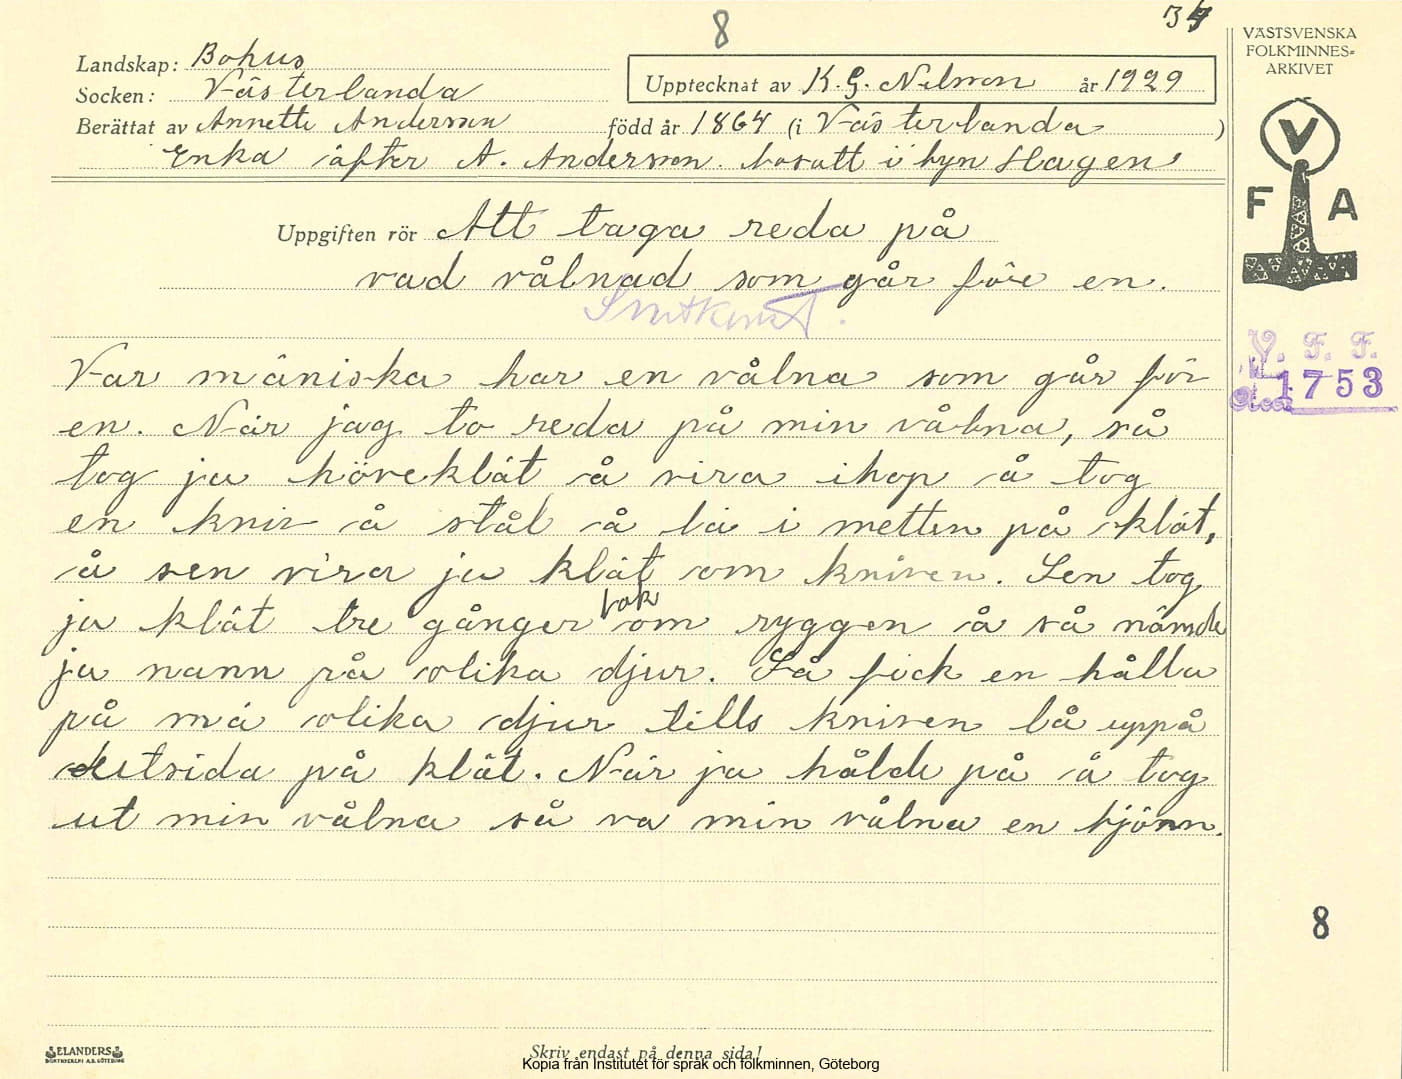 8
34
VÄSTSVENSKA
FOLKMINNES-
ARKIVET
Landskap: Bohus
Socken: Västerlanda
Upptecknat av K. G. Nilsson år 1929
Berättat av Annette Andersson född år 1864 (i Västerlanda )
Enka äfter A. Andersson. bosatt i byn Hagen
V
F A
Uppgiften rör Att taga reda på
vad vålnad som går före en.
V. F. F.
1753
Var mäniska har en vålna som går för
en. När jag to reda på min vålna, så
tog ja höveklät å vira ihop å tog
en kniv å stål å la i metten på klät,
å sen vira ja klät om kniven. Sen tog
ja klät tre gånger bak om ryggen å så nämde
ja namn på olika djur. Så fick en hålla
på má olika djur tills kniven lå uppå
utsida på klät. När ja hålde på å tog
ut min vålna så va min vålna en bjönn.
8
ELANDERS
BOKTRYCKERI A.B. GÖTEBORG
Skriv endast på denna sida!
Kopia från Institutet för språk och folkminnen, Göteborg